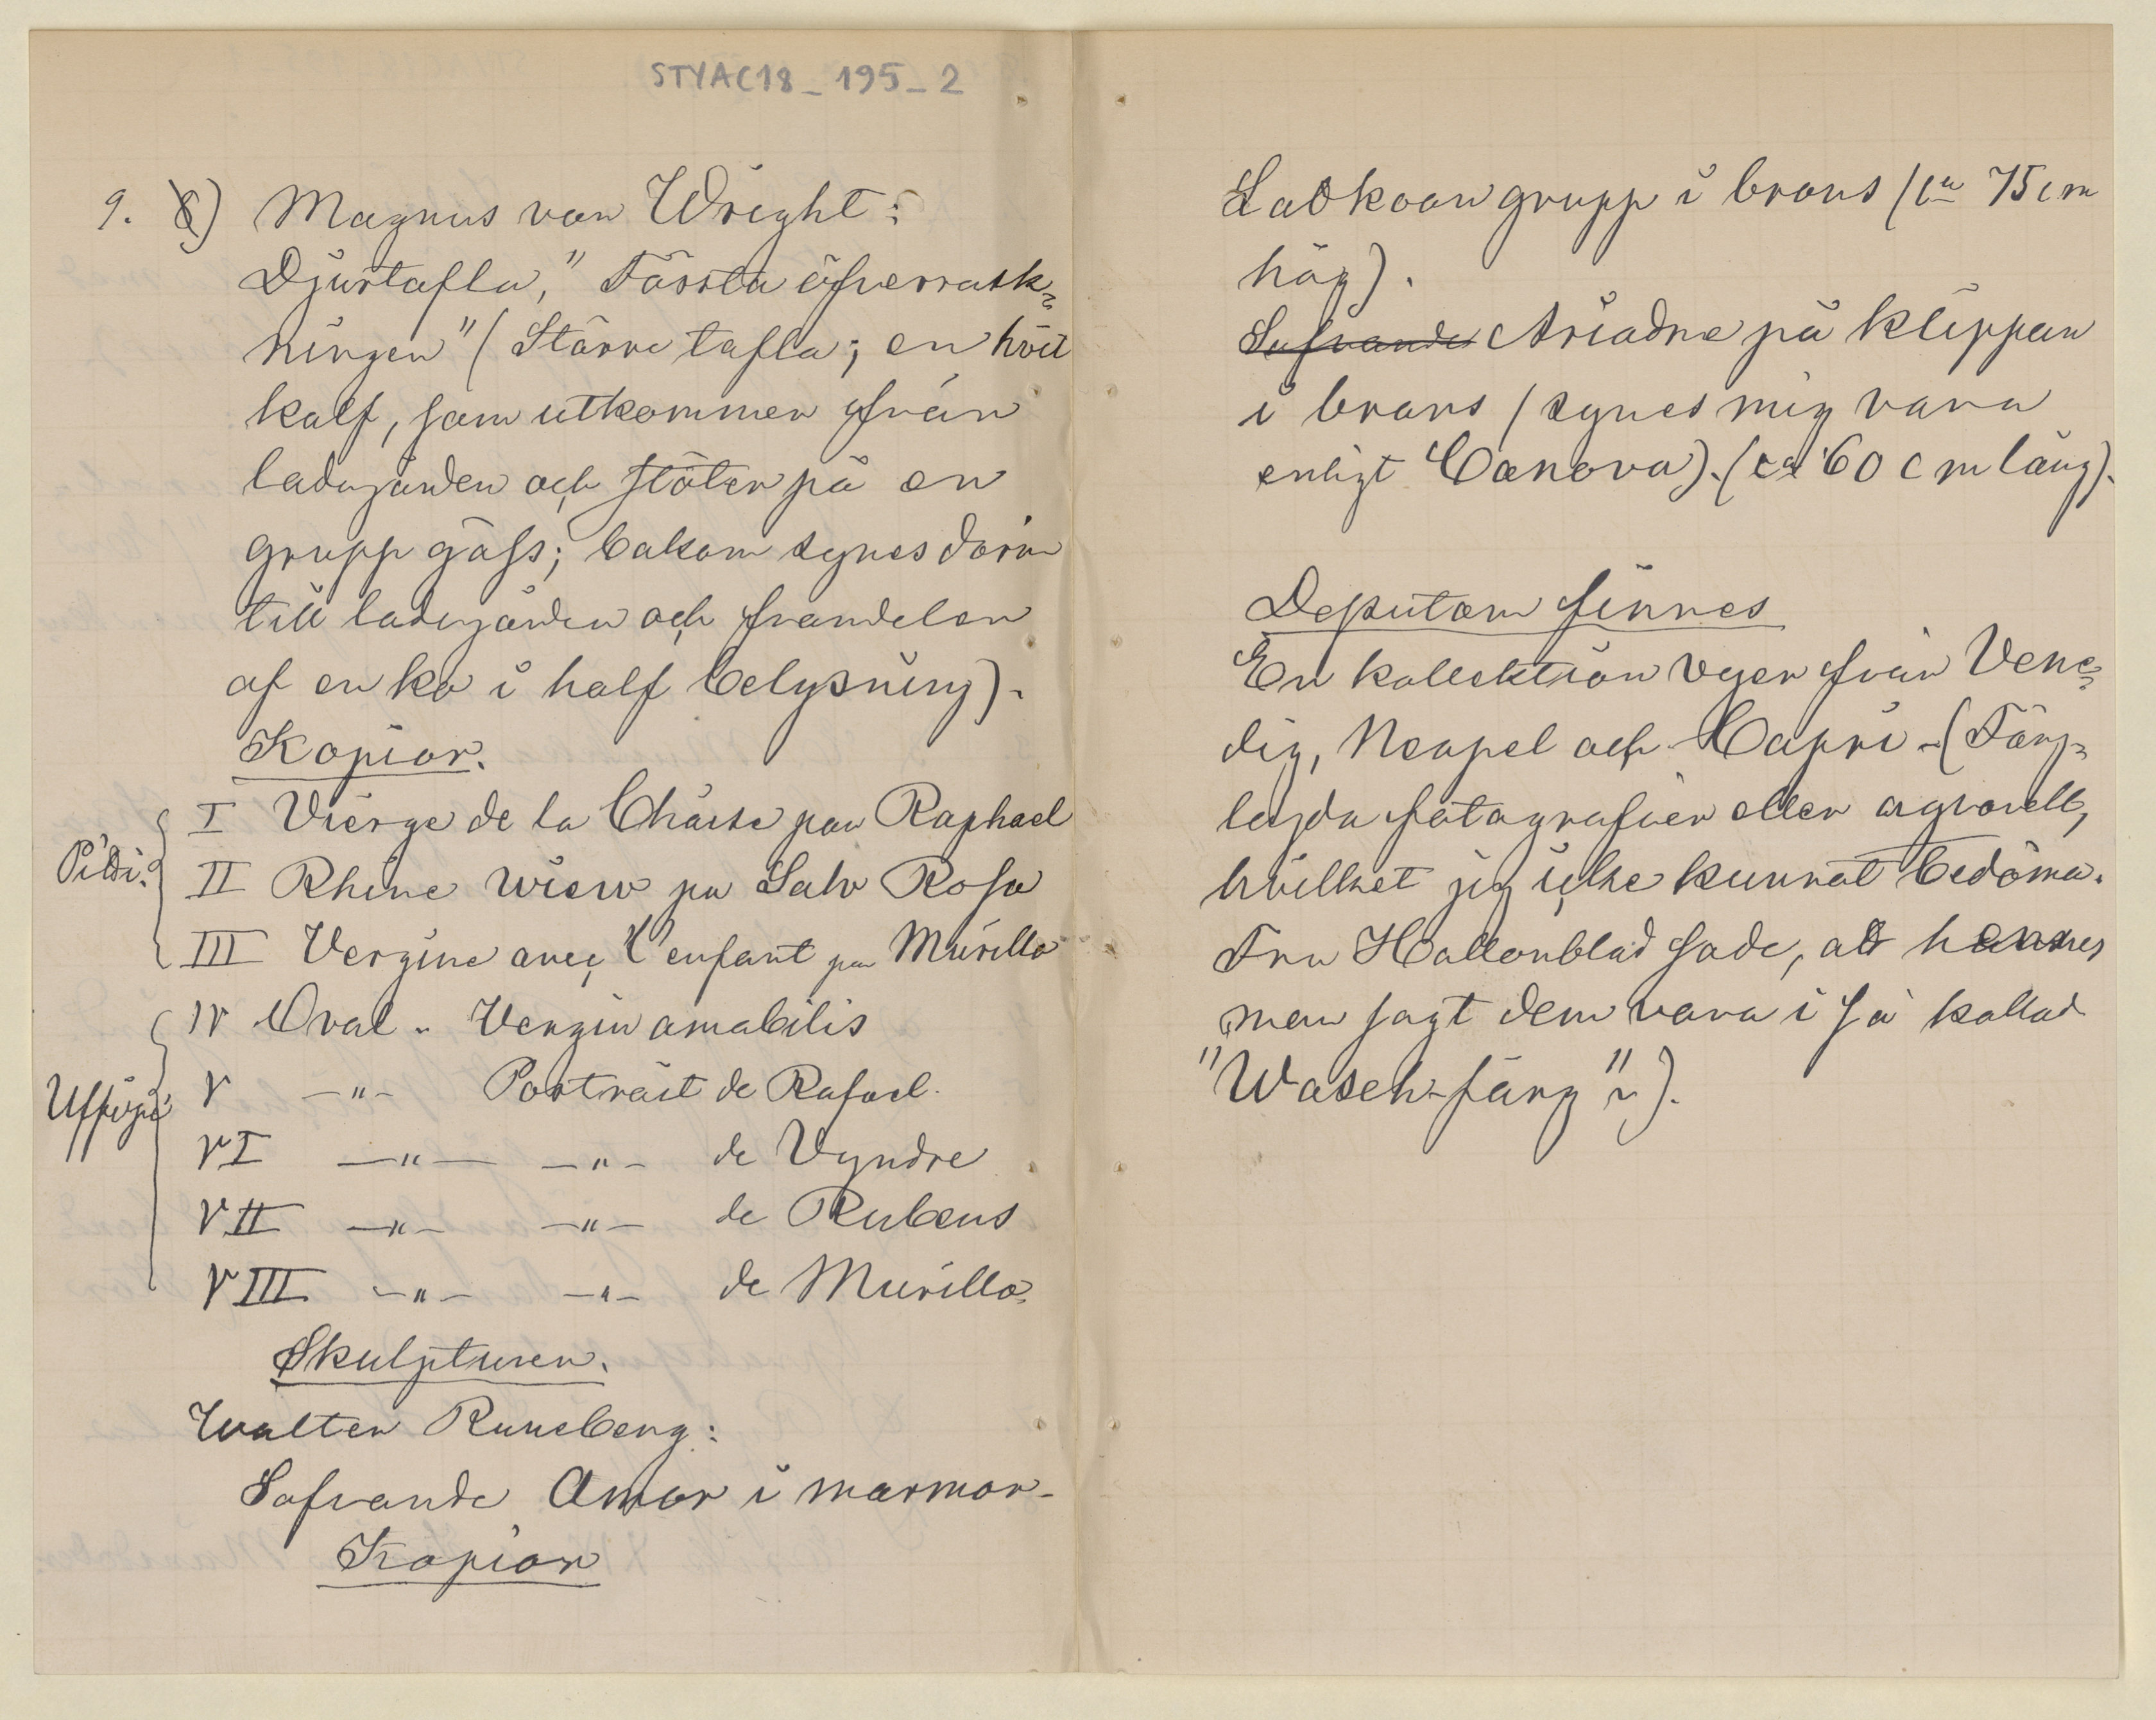 STYAC18_195_2
9. 8) Magnus von Wright:
Djurtafla, "Första öfverrask-
ningen" (Större tafla; en hvit
kalf, som utkommer från
ladugården och stöter på en
grupp gäss; bakom synes dörrn
till ladugården och framdelen
af en ko i half belysning).
Kopior.
I Vierge de la Chaise par Raphael
Pitti. II Rhine wiew pa Salv Rosa
III Vergine avec l'enfant par Murillo
IV Oval - Vergin amabilis
Uffizzi V —"— Porträit de Rafael.
VI —"— —"— de Vyndre
VII —"— —"— de Rubens
VIII —"— —"— de Murillo.
Skulpturer.
Walter Runeberg:
Sofvande Amor i marmor-
Kopior
Laokoon grupp i brons (ca 75 cm
hög).
Sofvande Ariadne på klippan
i brons (synes mig vara
enligt Canova). (ca 60 cm lång).
Desutom finnes
En kollektion vyer från Vene-
dig, Neapel och Capri - (Färg-
lagda fotografier eller aqvarell,
hvilket jag icke kunnat bedöma.
Fru Hallonblad sade, att hennes
man sagt dem vara i så kallad
"Wasch-färg"-).